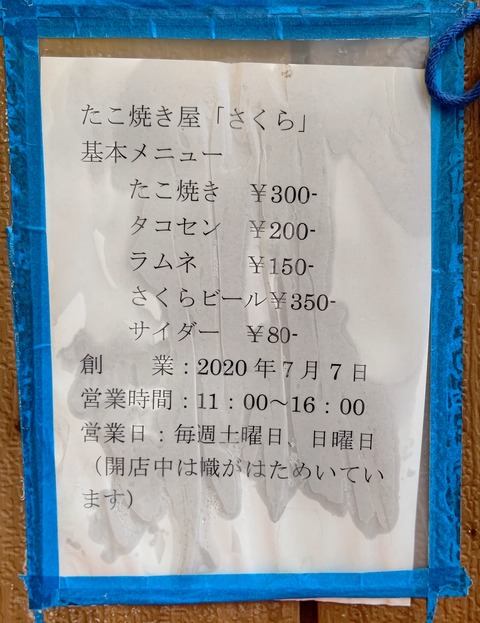 たこ焼き屋「さくら」
基本メニュー
たこ焼き ￥300-
タコセン ￥200-
ラムネ ￥150-
さくらビール￥350-
サイダー ￥80-
創　業：2020年7月7日
営業時間：11：00～16：00
営業日：毎週土曜日、日曜日
（開店中は幟がはためいてい
ます）